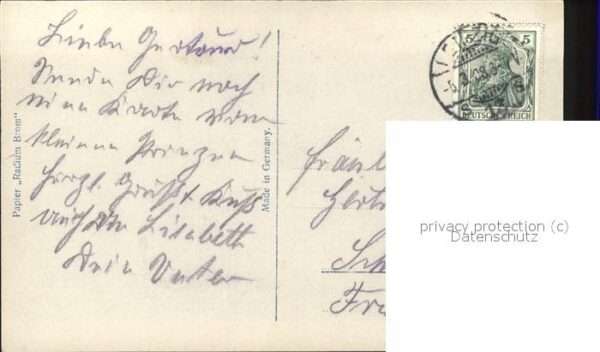 Liebe Gertrud!
Sende Dir noch
eine Karte vom
kleinen Prinzen
Herzl. Gruß + Kuß
auch an Lisabeth
Dein Vater
Papier „Radium Brom"
Made in Germany.
5 5
DEUTSCHES REICH
Fräul
Gertr
Sch
Fr
privacy protection (c)
Datenschutz